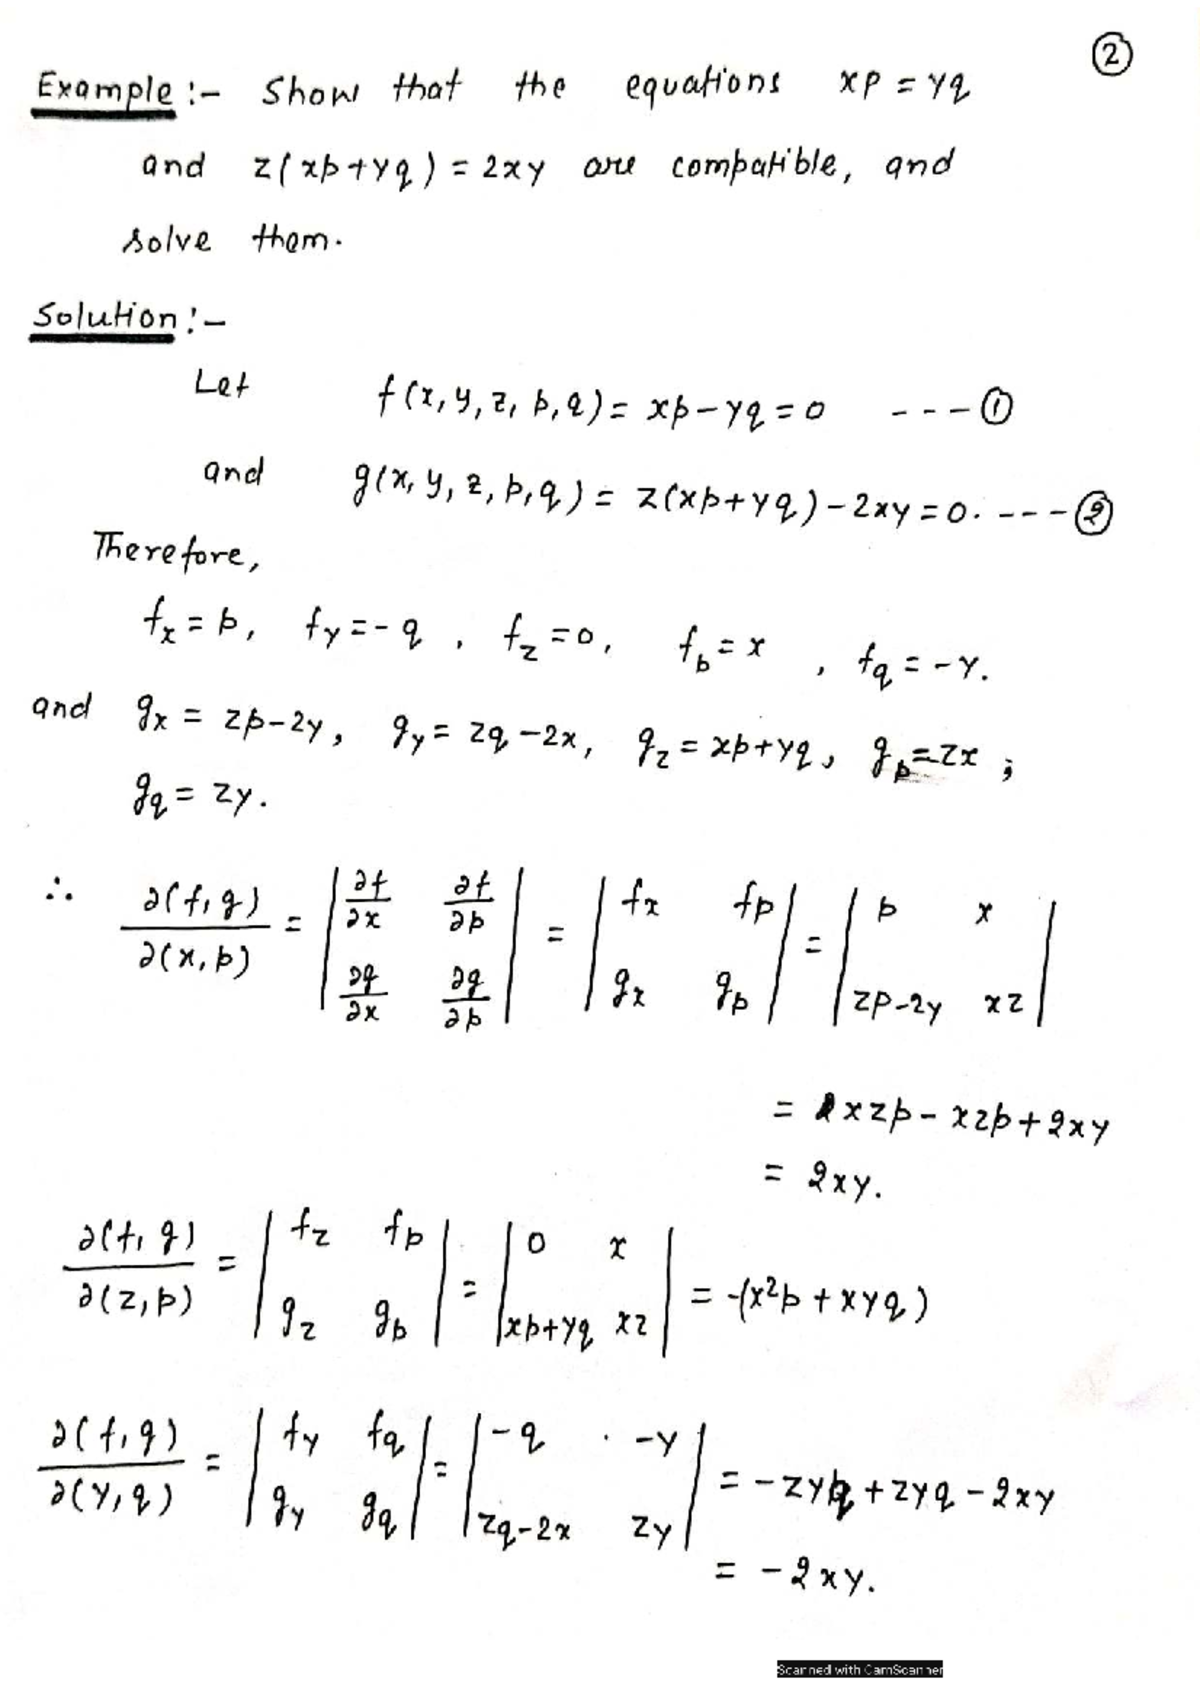 ②
Example :- Show that the equations xp = yq
and z(xp+yq) = 2xy are compatible, and
solve them.
Solution :-
Let f(x, y, z, p, q) = xp - yq = 0 --- ①
and g(x, y, z, p, q) = z(xp+yq) - 2xy = 0. --- ②
Therefore,
f_x = p, f_y = -q, f_z = 0, f_p = x, f_q = -y.
and g_x = zp-2y, g_y = zq-2x, g_z = xp+yq, g_p = zx ;
g_q = zy.
∴ ∂(f,g)/∂(x,p) = | ∂f/∂x ∂f/∂p ; ∂g/∂x ∂g/∂p | = | f_x f_p ; g_x g_p | = | p x ; zp-2y xz |
= xzp - xzp + 2xy
= 2xy.
∂(f,g)/∂(z,p) = | f_z f_p ; g_z g_p | = | 0 x ; xp+yq xz | = -(x²p + xyq)
∂(f,g)/∂(y,q) = | f_y f_q ; g_y g_q | = | -q -y ; zq-2x zy | = -zyq + zyq - 2xy
= -2xy.
Scanned with CamScanner